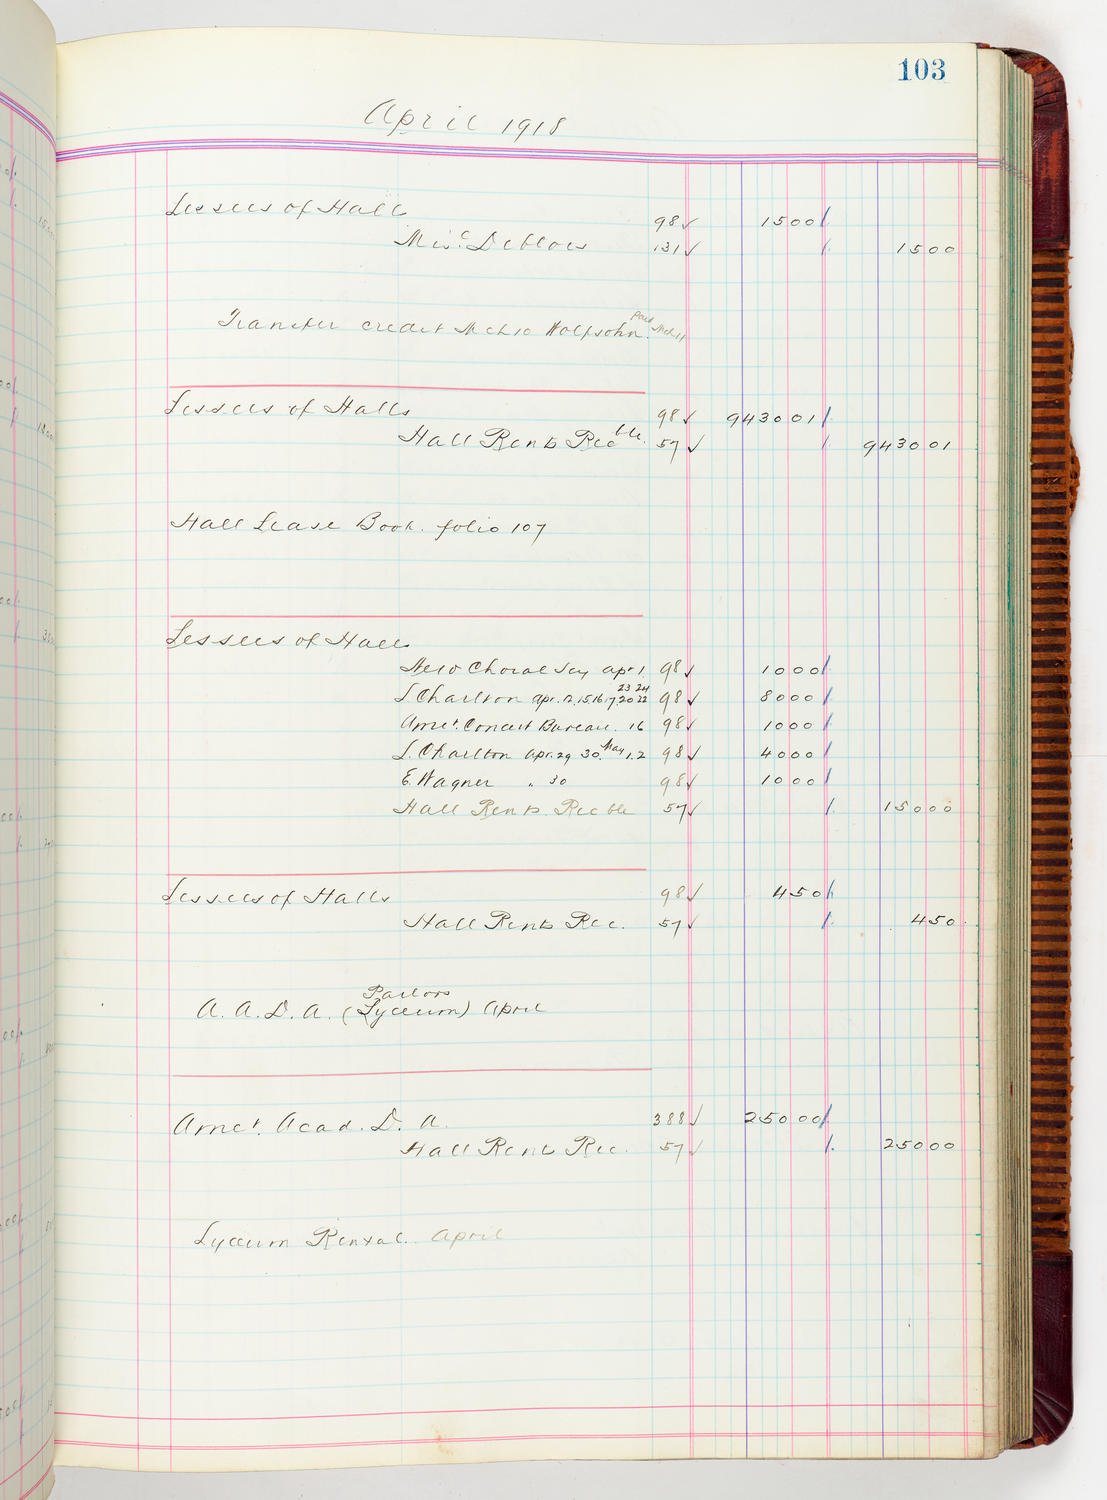 103
April 1918
Lessees of Hall 98 ✓ 1500
Misc. Deblois 131 ✓ 1500
Transfer credit Mch 10 Wolfsohn Paid Mch 11
Lessees of Halls 98 ✓ 943001
Hall Rents Recble. 57 ✓ 943001
Hall Lease Book. folio 107
Lessees of Hall
New Choral Soy apr 1 98 ✓ 1000
L Charlton apr. 12, 15, 16, 17, 20 22 23 24 98 ✓ 8000
Amer. Concert Bureau. 16 98 ✓ 1000
L. Charlton apr. 29 30. May 1. 2 98 ✓ 4000
E. Wagner " 30 98 ✓ 1000
Hall Rents Recble 57 ✓ 15000
Lessees of Halls 98 ✓ 450
Hall Rents Rec. 57 ✓ 450
Parlors
A. A. D. A. (Lyceum) April
Amer. Acad. D. A. 388 ✓ 25000
Hall Rents Rec. 57 ✓ 25000
Lyceum Rental. April